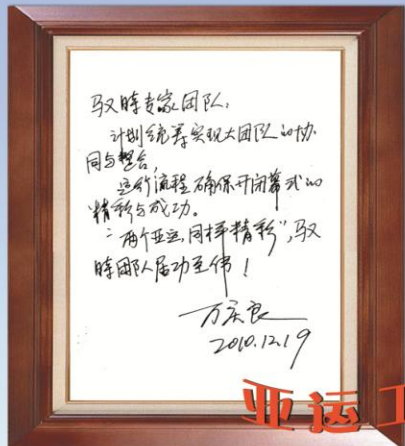 驭時专家团队:
计划统筹实现大团队的协
同与整合,
运行流程确保开闭幕式的
精彩与成功。
“两个亚运,同样精彩”,驭
時团队居功至伟!
万庆良
2010.12.19
亚运